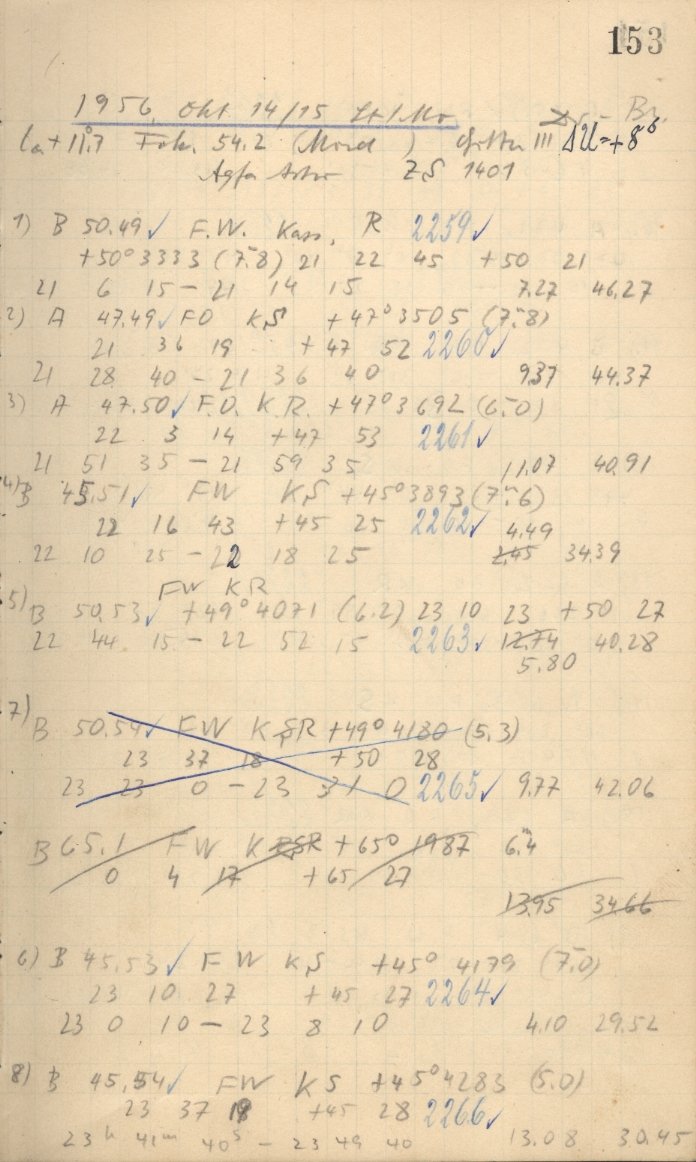 153
1956, Okt 14/15
Fok. 54.2 (Mond ) III ΔU=+8ˢ
Agfa Astro ZS 1401
1) B 50.49✓ F.W. Kass. R 2259✓
+50°3333 (7.ᵐ8) 21 22 45 +50 21
21 6 15 – 21 14 15 7.27 46.27
2) A 47.49✓ FO KS +47°3505 (7.ᵐ8)
21 36 19 +47 52 2260✓
21 28 40 – 21 36 40 9.37 44.37
3) A 47.50✓ F.O. K.R. +47°3692 (6.ᵐ0)
22 3 14 +47 53 2261✓
21 51 35 – 21 59 35 11.07 40.91
4) B 45.51✓ FW KS +45°3893 (7.ᵐ6)
22 16 43 +45 25 2262✓ 4.49
22 10 25 – 22 18 25 2.45 34.39
FW KR
5) B 50.53✓ +49°4071 (6.2) 23 10 23 +50 27
22 44 15 – 22 52 15 2263✓ 12.74 40.28
5.80
7) B 50.54✓ FW KSR +49° 4180 (5.3)
23 37 18 +50 28
23 23 0 – 23 31 0 2265✓ 9.77 42.06
B 65.1 FW KSR +65° 1987 6.ᵐ4
0 4 17 +65 27
13.95 34.66
6) B 45.53✓ FW KS +45° 4179 (7.ᵐ0)
23 10 27 +45 27 2264✓
23 0 10 – 23 8 10 4.10 29.52
8) B 45.54✓ FW KS +45°4283 (5.0)
23 37 18 +45 28 2266✓
23ʰ 41ᵐ 40ˢ – 23 49 40 13.08 30.45